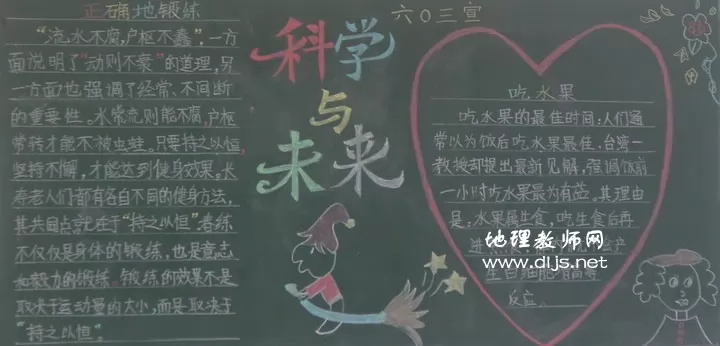 正确地锻练
"流水不腐,户枢不蠹",一方
面说明了"动则不衰"的道理,另
一方面也强调了经常、不间断
的重要性。水常流则能不腐,户枢
常转才能不被虫蛀。只要持之以恒,
坚持不懈,才能达到健身效果。长
寿老人们都有各自不同的健身方法,
其共同点就在于"持之以恒"春练
不仅仅是身体的锻练,也是意志
和毅力的锻练。锻练的效果不是
取决于运动量的大小,而是取决于
"持之以恒"。
科学
与
未来
六〇三宣
吃水果
吃水果的最佳时间:人们通
常以为饭后吃水果最佳,台湾一
教授却提出最新见解,强调饭前
一小时吃水果最为有益。其理由
是:水果属生食,吃生食后再
进
生白细胞增高等
反应。
地理教师网
www.dljs.net